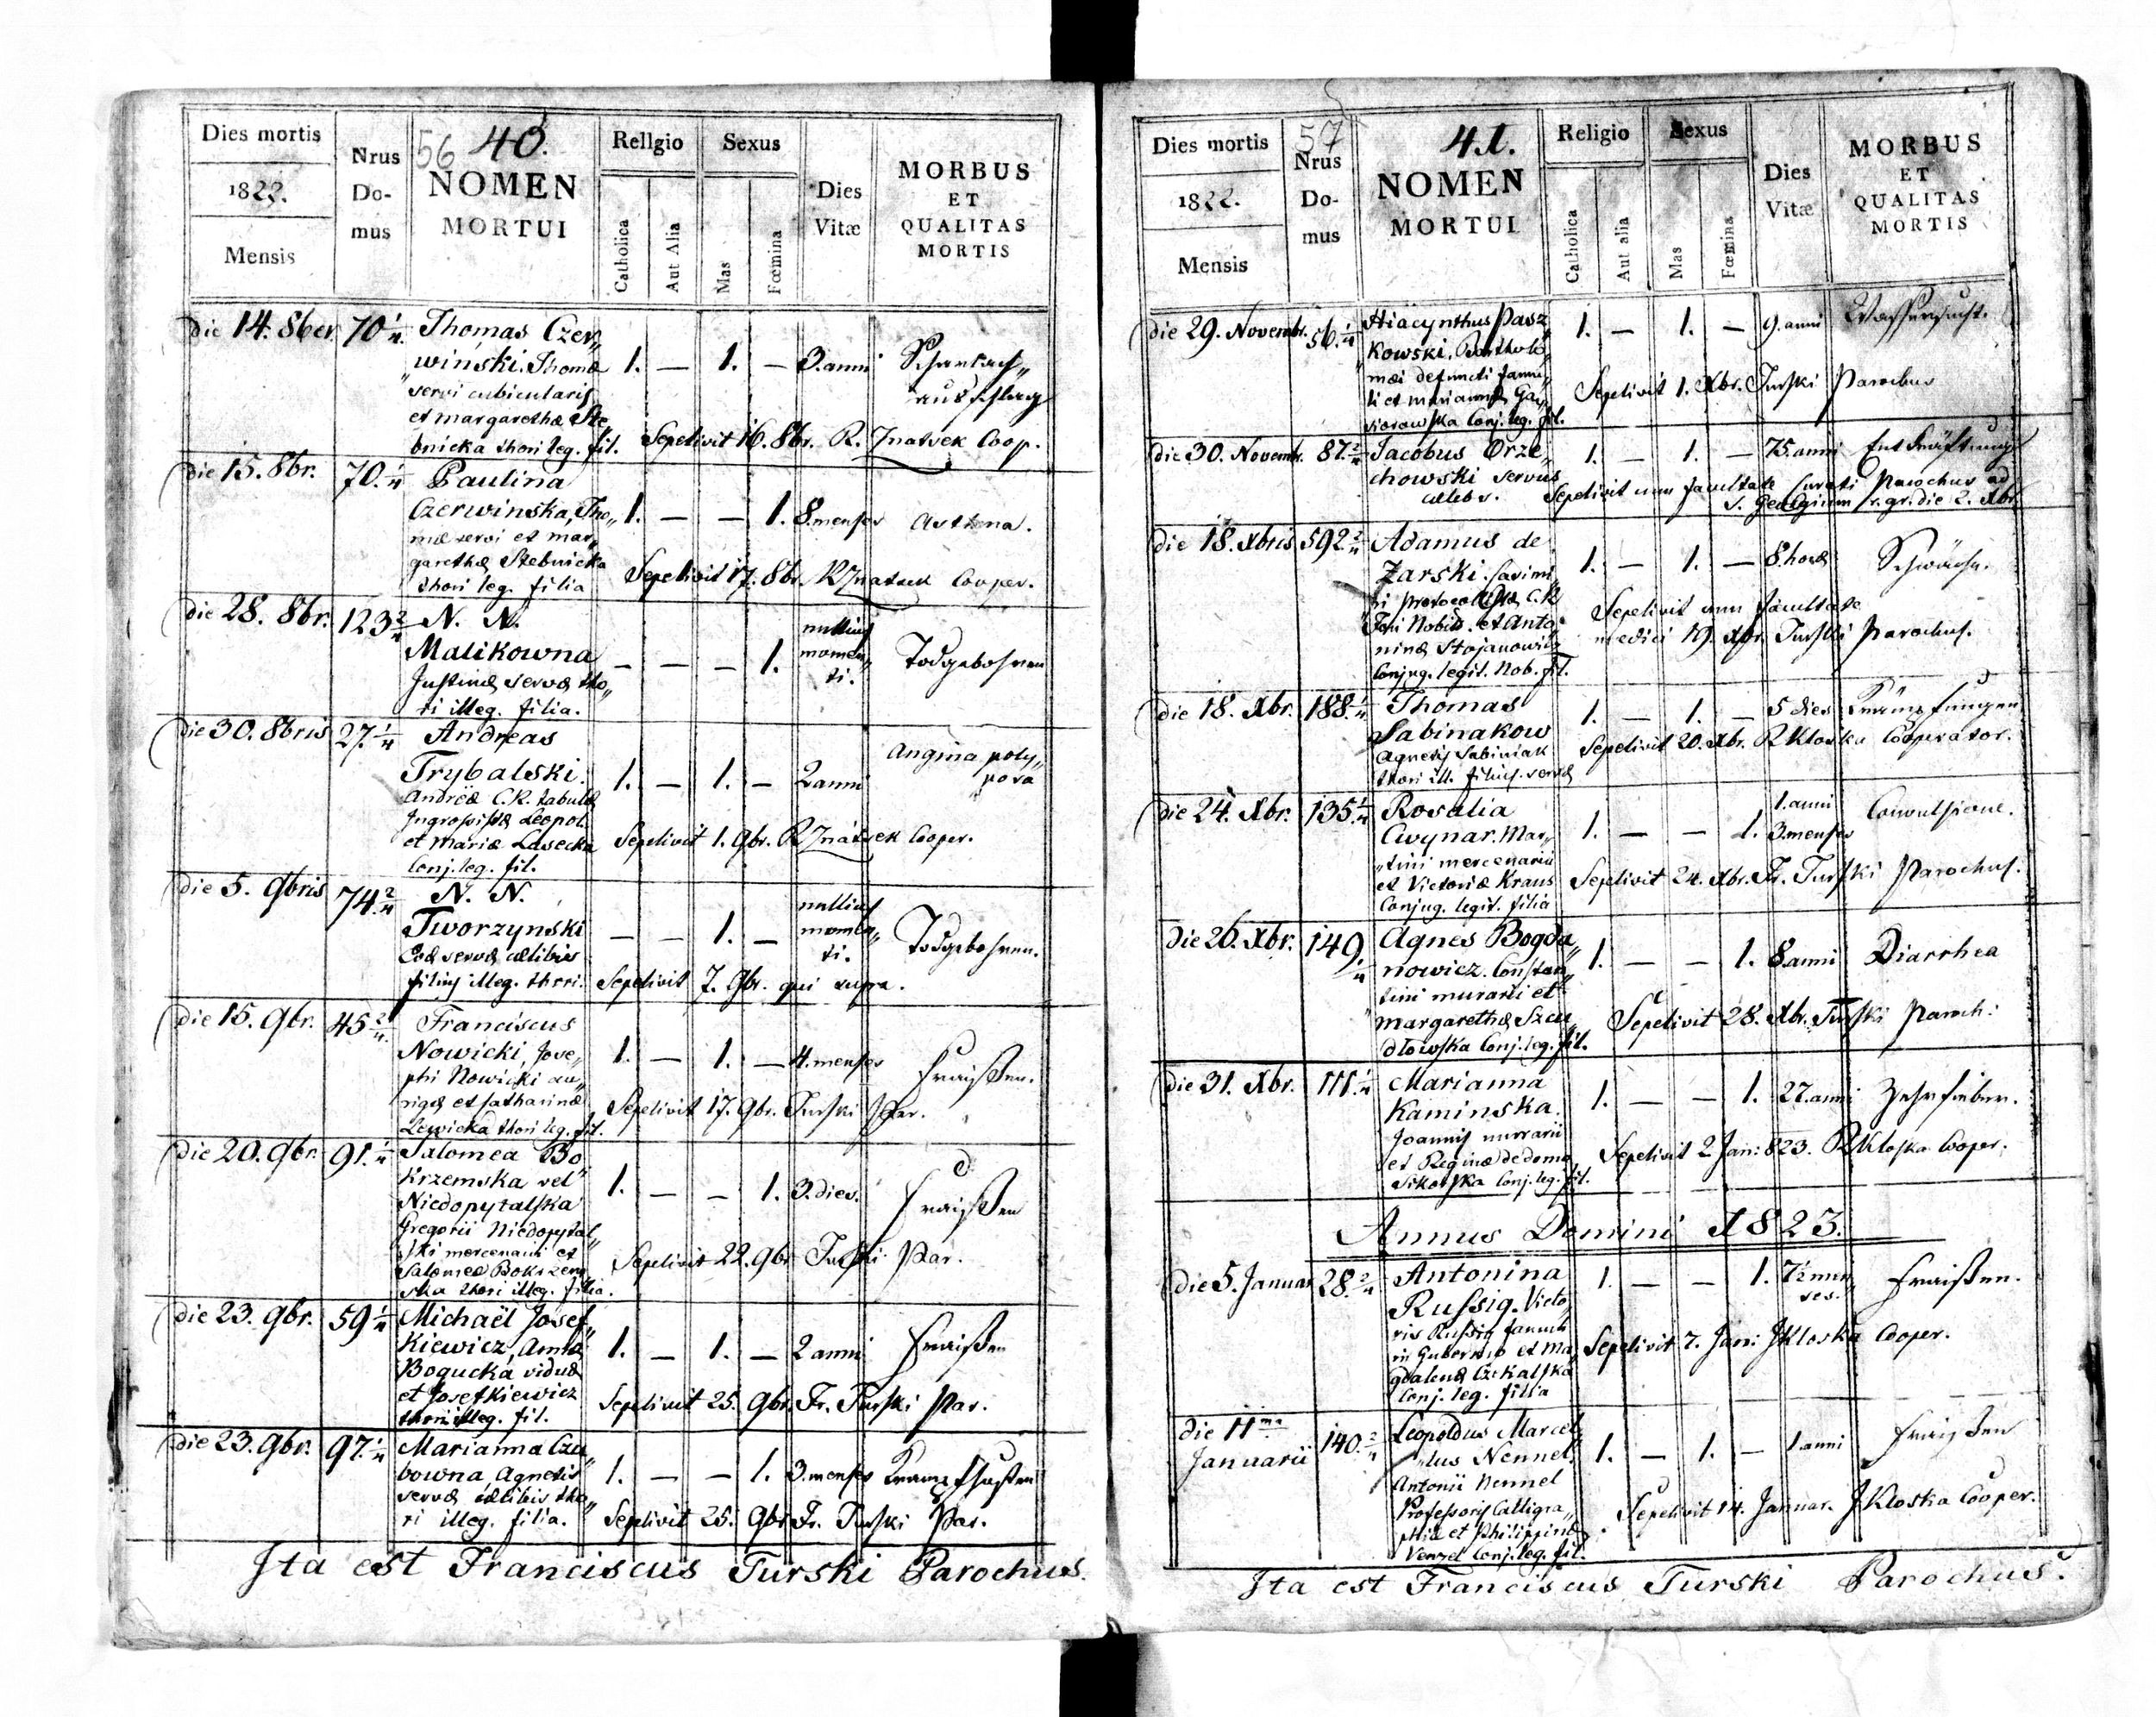 Dies mortis
1822.
Mensis
Nrus
Do-
mus
56 40.
NOMEN
MORTUI
Rellgio
Catholica
Aut Alia
Sexus
Mas
Fœmina
Dies
Vitæ
MORBUS
ET
QUALITAS
MORTIS
die 14. 8ber. 70 1/4 Thomas Czer„
winski, Thomæ 1. — 1. — 3. anni Scharlach„
servi cubicularis ausschlag
et margarethæ Ste„
bnicka thori leg. fil. Sepelivit 16. 8br. R. Znatsek Coop.
die 15. 8br. 70. 1/4 Paulina
Czerwinska, Tho„ 1. — — 1. 8. menses Asthena.
mæ servi et mar„
garethæ Stebnicka Sepelivit 17. 8br. R Znatsek Cooper.
thori leg. filia
die 28. 8br. 123 2/4 N. N.
Malikowna — — — 1. nullius momen„ ti. Todgebohren
Justinæ servæ tho„
ri illeg. filia.
die 30. 8bris 27. 1/4 Andreas
Trybalski. 1. — 1. — 2 anni Angina poly„
posa
Andreæ C. R. tabulæ
Ingrossistæ Leopol.
et Mariæ Lasecka Sepelivit 1. 9br. R Znatsek Cooper.
Conj. leg. fil.
die 5. 9bris 74. 2/4 N. N.
Tworzynski — — 1. — nullius momen„ ti. Todgebohren.
Evæ servæ cælibis
filius illeg. thori. Sepelivit 7. 9br. qui supra.
die 15. 9br. 45 2/4 Franciscus
Nowicki, Jose„ 1. — 1. — 4. menses Fraißen.
phi Nowicki au„
rigæ et Catharinæ Sepelivit 17. 9br. Turski Par.
Lewicka thori leg. fil.
die 20. 9br. 91. 1/4 Salomea Bo„
Krzemska vel 1. — — 1. 3. dies. Fraißen
Niedopytalska
Gregorii Niedopytal„
ski mercenarii et Sepelivit 22. 9br Turski Par.
Salomeæ Bokrzem„
ska thori illeg. filia.
die 23. 9br. 59 1/4 Michaël Josef„
Kiewicz, Annæ 1. — 1. — 2 anni Fraißen
Bogucka viduæ
et Josefkiewicz Sepelivit 25. 9br. Fr. Turski Par.
thori illeg. fil.
die 23. 9br. 97. 1/4 Marianna Czu„
bowna, Agnetis 1. — — 1. 3. menses Krampfhusten
servæ cælibis tho„
ri illeg. filia. Sepelivit 25. 9br Fr. Turski Par.
Ita est Franciscus Turski Parochus.
Dies mortis
1822.
Mensis
57
Nrus
Do-
mus
41.
NOMEN
MORTUI
Religio
Catholica
Aut alia
Sexus
Mas
Fœmina
Dies
Vitæ
MORBUS
ET
QUALITAS
MORTIS
die 29. Novembr. 56. 1/4 Hiacynthus Pasz„ 1. — 1. — 9. anni Wassersucht.
kowski, Bartholo„
mæi defuncti famu„
li et mariannæ Gą„ Sepelivit 1. Xbr. Turski Parochus
siorowska Conj. leg. fil.
die 30. Novembr. 87. 2/4 Jacobus Orze„ 1. — 1. — 75. anni Entkräftung
chowski servus
cælebs. Sepelivit cum facultate Curati Parochus ad
S. Georgium r. gr. die 2. Xbr.
die 18. Xbris 592 2/4 Adamus de
Zarski. Casimi„ 1. — 1. — 8. horæ Schwäche.
ri Protocolistæ C. R
Fori Nobil. et Anto„ Sepelivit cum facultate
ninæ Stojanowicz medici 19. Xbr. Turski Parochus.
Conjug. legit. Nob. fil.
die 18. Xbr. 188. 1/4 Thomas 1. — 1. — 5 dies Krämpfungen
Sabinakow
Agnetis Sabiniak Sepelivit 20. Xbr. R Kloska Cooperator.
thori ill. filius. servæ
die 24. Xbr. 135. 1/4 Rosalia 1. anni
Cwynar. Mar„ 1. — — 1. 3. menses Convulsione.
tini mercenarii
et Victoriæ Kraus Sepelivit 24. Xbr. Fr. Turski Parochus.
Conjug. legit. filia
die 26. Xbr. 149. /4 Agnes Bogda„
nowicz. Constan„ 1. — — 1. 8. anni Diarrhea
tini murarii et
margarethæ Szcu„ Sepelivit 28. Xbr. Turski Paroch:
dłowska Conj. leg. fil.
die 31. Xbr. 111. 1/4 Marianna
Kaminska. 1. — — 1. 27. anni Zehrfieber.
Joannis murarii
et Reginæ de domo Sepelivit 2 Jan: 823. R Kloska Cooper.
Sikorska Conj. leg. fil.
Annus Domini 1823.
die 5. Januar 28. 2/4 Antonina 1. — — 1. 7 1/2 men„ ses. Fraißen.
Russig. Victo„
ris Russig famuli
in Gubernio et Ma„ Sepelivit 7. Jan: J Kloska Cooper.
gdalenæ Czekalska
Conj. leg. filia
die 11ma
Januarii 140. 2/4 Leopoldus Marcel„
lus Nennel, 1. — 1. — 1. anni Fraißen
Antonii Nennel
Professoris Calligra„ Sepelivit 14. Januar. J. Kloska Cooper.
phiæ et Philippinæ
Venzel Conj. leg. fil.
Ita est Franciscus Turski Parochus.